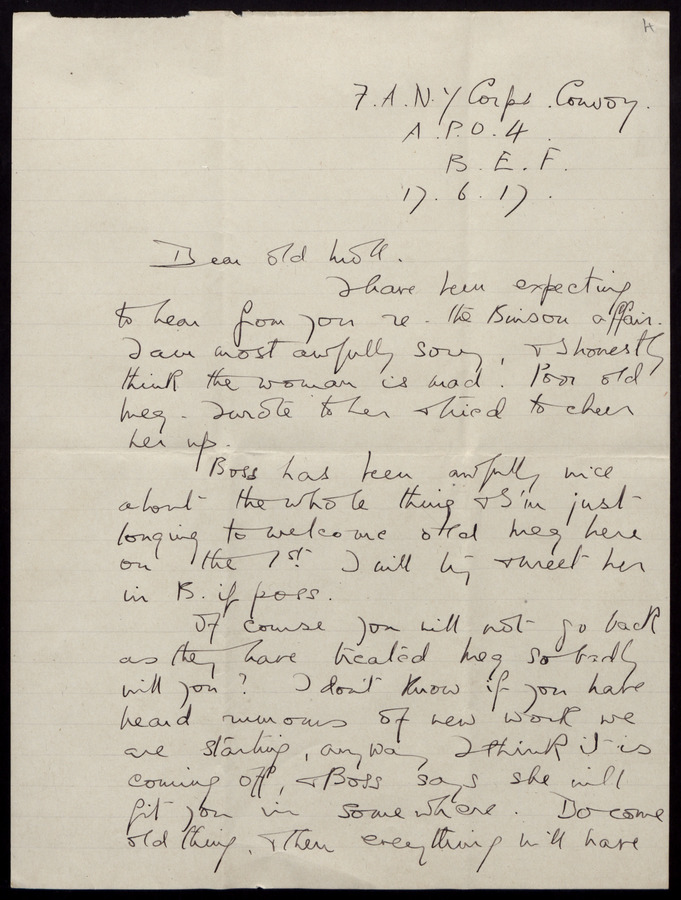 H
F.A.N.Y Corps. Convoy.
A.P.O. 4.
B.E.F.
17.6.17.
Dear old Moll.
I have been expecting
to hear from you re - the affair.
I am most awfully sorry, & I honestly
think the woman is mad! Poor old
Meg - I wrote to her & tried to cheer
her up.
Boss has been awfully nice
about the whole thing & I'm just
longing to welcome old Meg here
on the 1st. I will try & meet her
in B. if poss.
Of course you will not go back
as they have treated Meg so badly
will you? I don't know if you have
heard rumours of new work we
are starting, anyway I think it is
coming off, & Boss says she will
fit you in somewhere. Do come
old thing, & then everything will have